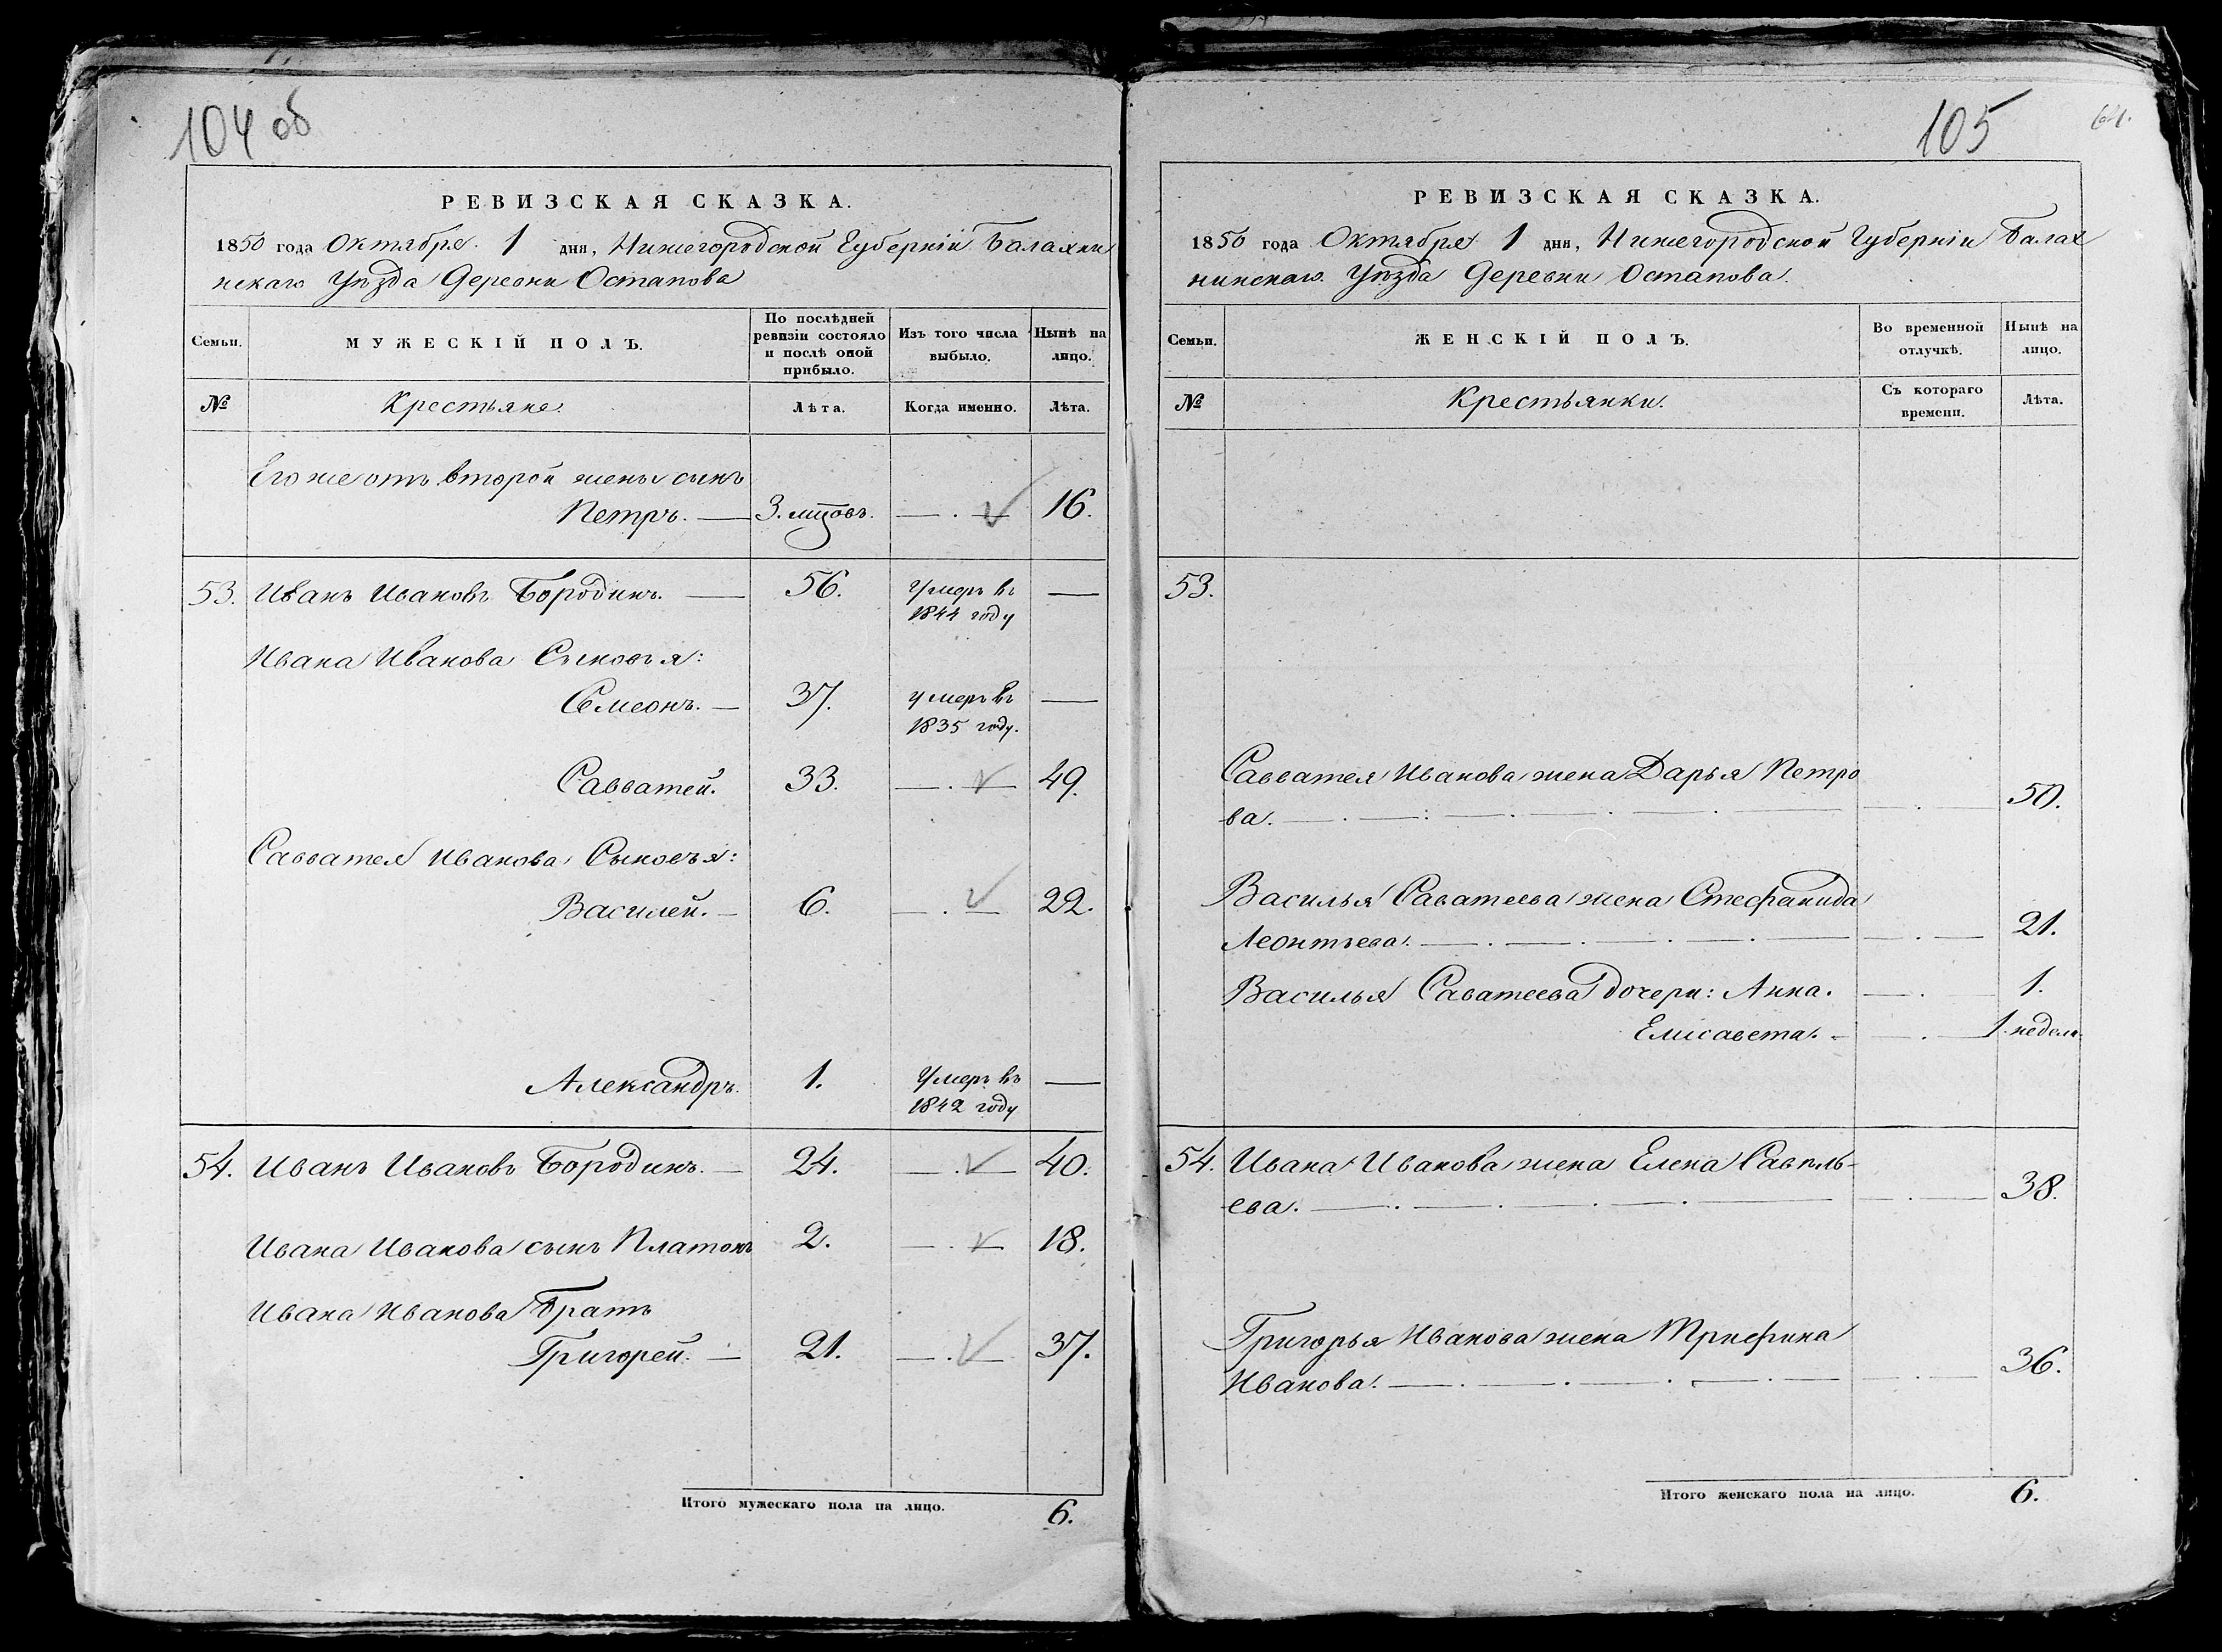 104 об
РЕВИЗСКАЯ СКАЗКА.
1850 года Октября 1 дня, Нижегородской Губерніи Балахни
нскаго Уѣзда Деревни Остапова
Семьи.
МУЖЕСКІЙ ПОЛЪ.
По послѣдней ревизіи состояло и послѣ оной прибыло.
Изъ того числа выбыло.
Нынѣ на лицо.
№
Крестьяне.
Лѣта.
Когда именно.
Лѣта.
Его же отъ второй жены сынъ
Петръ. 3. мцовъ. 16.
53. Иванъ Ивановъ Бородинъ. 56. Умеръ въ
1844 году
Ивана Иванова Сыновья:
Семеонъ. 37. умеръ въ
1835 году.
Савватей. 33. 49.
Савватея Иванова Сыновья:
Василей. 6. 22.
Александръ. 1. Умеръ въ
1842 году
54. Иванъ Ивановъ Бородинъ. 24. 40.
Ивана Иванова сынъ Платонъ 2. 18.
Ивана Иванова Братъ
Григорей. 21. 37.
Итого мужескаго пола на лицо. 6.
105
64.
РЕВИЗСКАЯ СКАЗКА.
1850 года Октября 1 дня, Нижегородской Губерніи Балах
нинскаго Уѣзда Деревни Остапова.
Семьи.
ЖЕНСКІЙ ПОЛЪ.
Во временной отлучкѣ.
Нынѣ на лицо.
№
Крестьянки.
Съ котораго времени.
Лѣта.
53.
Савватея Иванова жена Дарья Петро
ва. 50.
Василья Саватеева жена Стефанида
Леонтьева. 21.
Василья Саватеева дочери: Анна. 1.
Елисавета. 1 недели.
54. Ивана Иванова жена Елена Савель-
ева. 38.
Григорья Иванова жена Трифина
Иванова. 36.
Итого женскаго пола на лицо. 6.